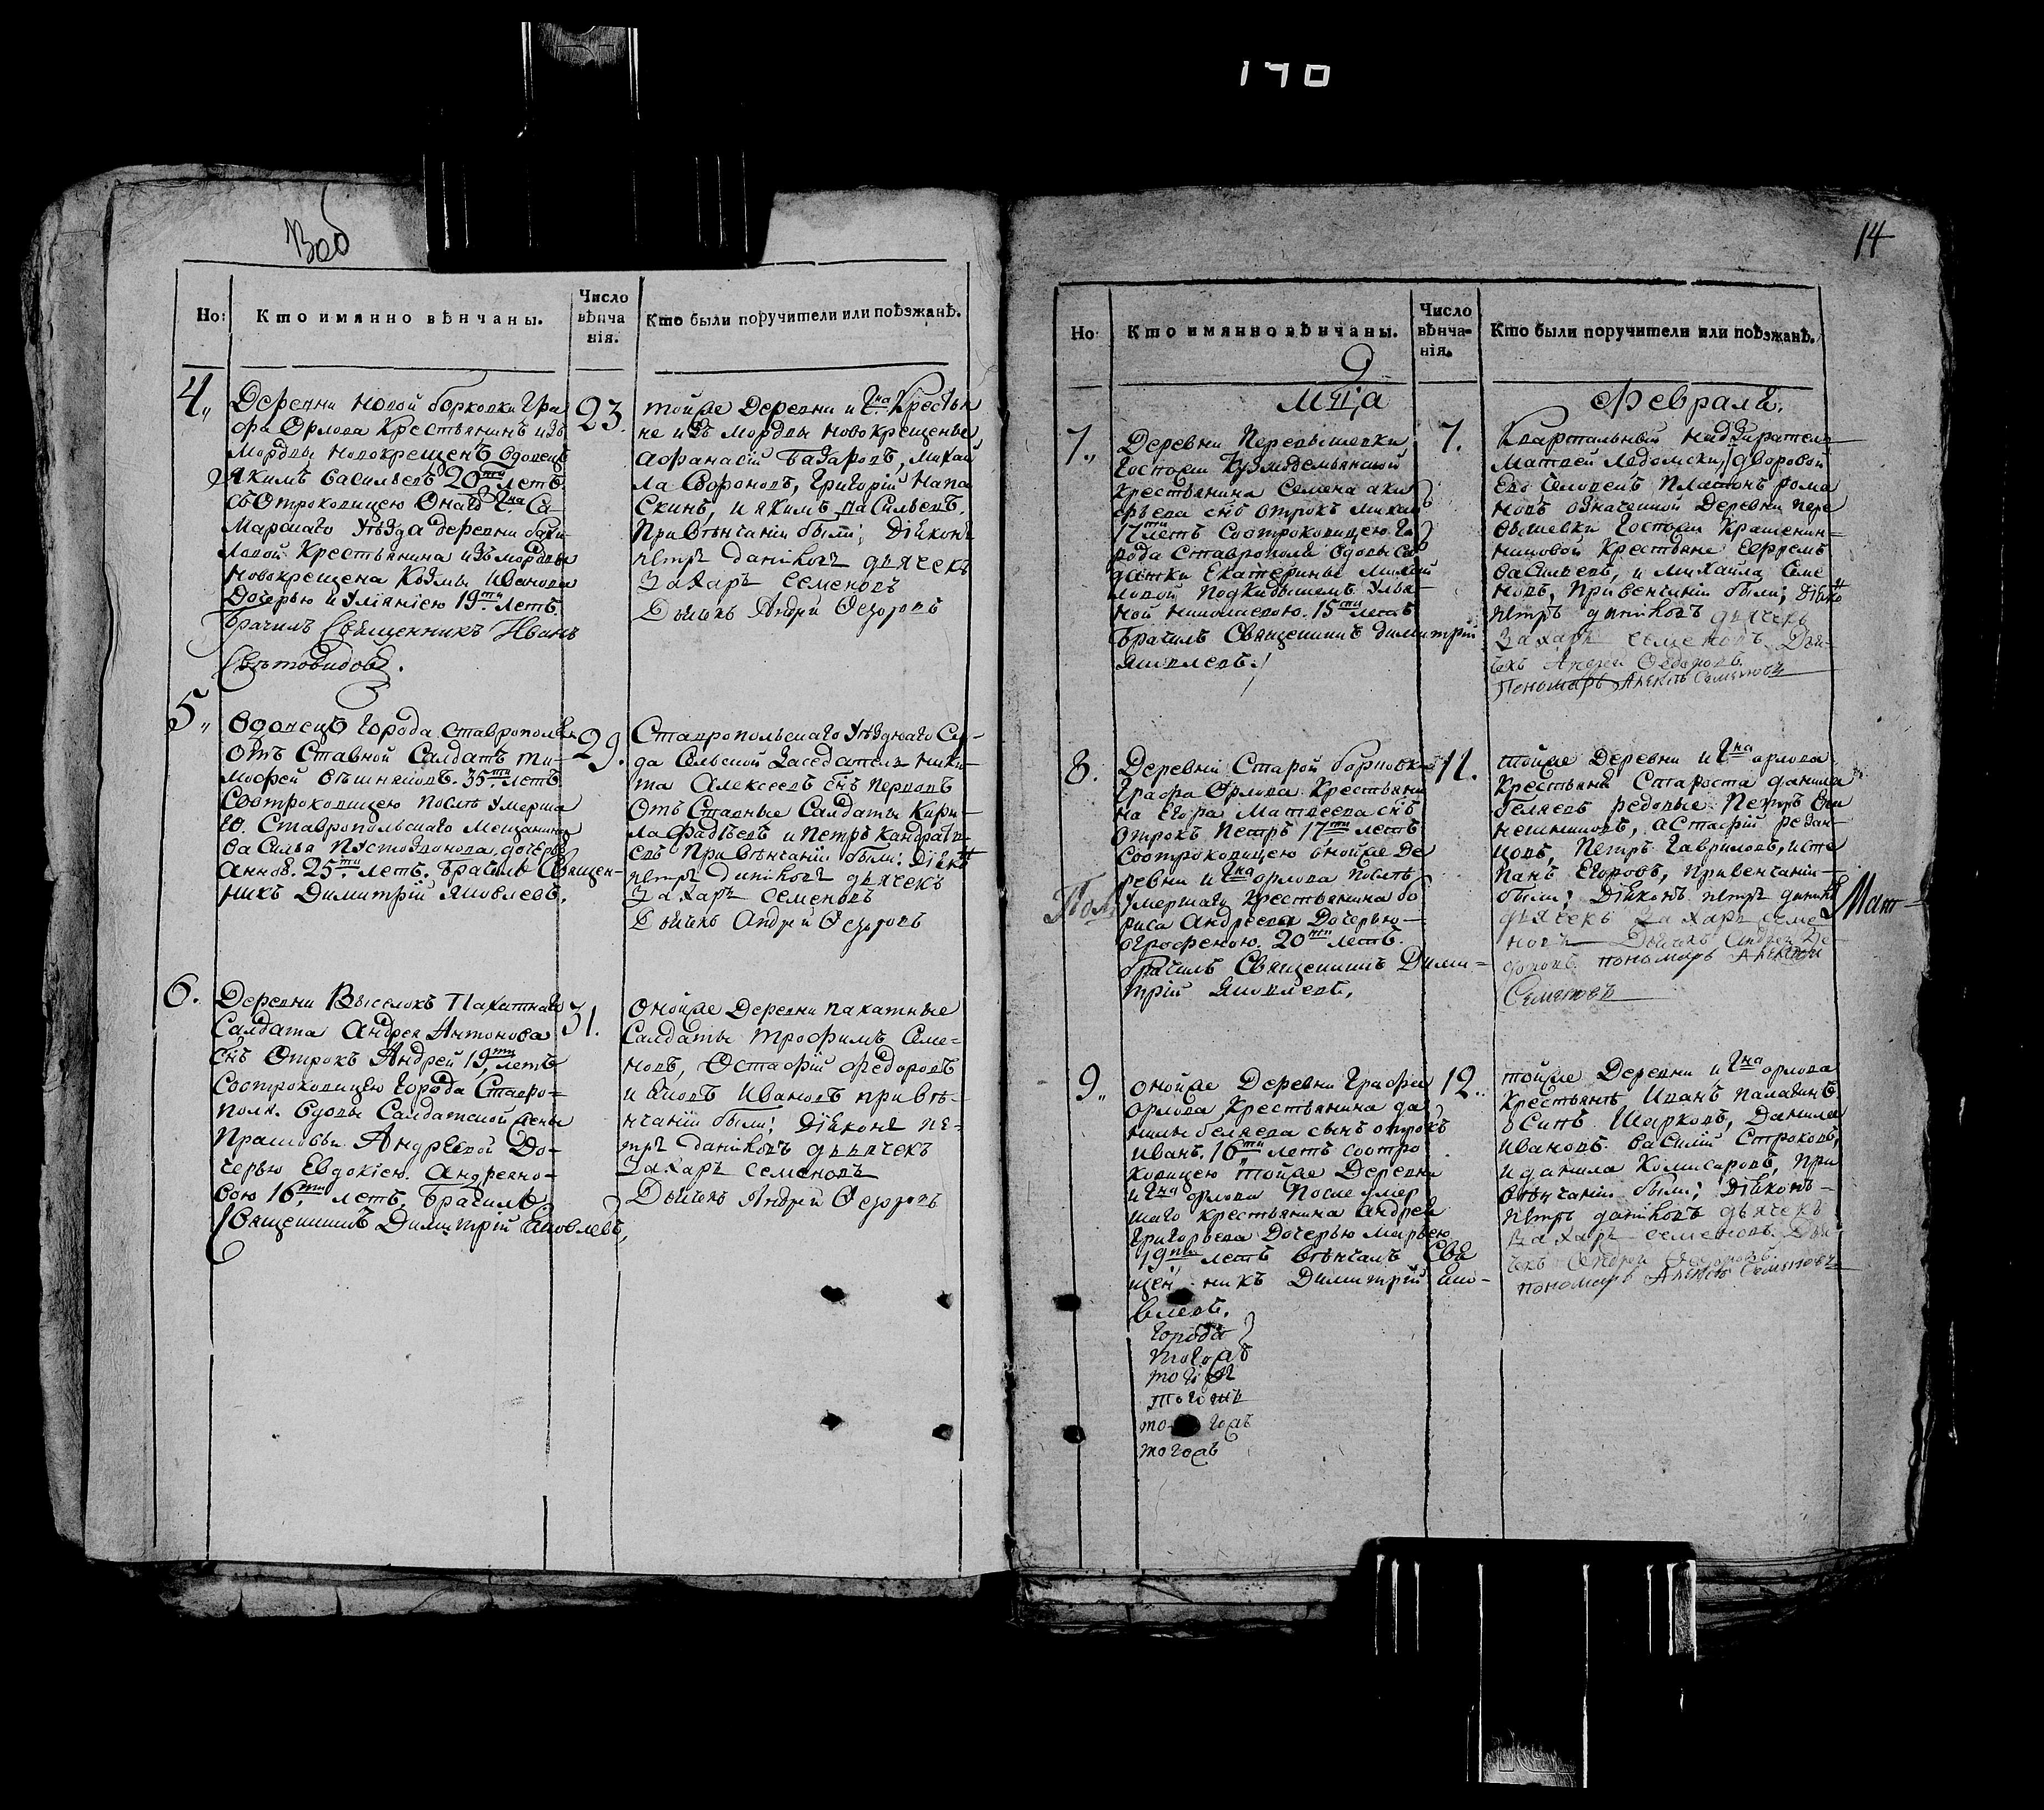 170
Но:
Кто имянно вѣнчаны.
Число вѣнча нія.
Кто были поручители или поѣзжанѣ.
4.
Деревни новой борковки Гра
фа Орлова Крестьянинъ изъ
Мордвы новокрещенъ вдовецъ
Якимъ васильевъ 20ти летъ
Марскаго Уѣзда деревни
ловой Крестьянина изъ мордвы
Новокрещена Козмы Иванова
Дочерью Улiянiею 19ти летъ.
Брачилъ Священникъ Иванъ
Свѣтовидовъ.
23.
тойже Деревни и Гна Крестья
не изъ Мордвы новокрещеные
Афанасiй Базаровъ, Михай
ла Вороновъ, Григорiй Напа
Скинъ, и якимъ васильевъ.
При Вѣнчанiи были; Дiяконъ
петръ данiковъ дьячекъ
Захаръ семеновъ
Дьячекъ Андрей Федоровъ
5.
Вдовецъ Города Ставрополя
Отъ Ставной Салдатъ ти-
мофей вѣшняковъ. 35ти летъ
Соотроковицею послѣ Умерша
го. Ставропольскаго Мещанина
Василья Пустозвонова дочерью
Анною. 25ти летъ. Брачилъ Священ-
никъ Димитрiй Яковлевъ.
29.
Ставропольскаго Уѣзднаго Су-
да Сельской Заседатель Ники-
та Алексеевъ снъ Перповъ
Отъ Ставные Салдаты Кири-
ла Фадѣевъ и Петръ Кандрать
евъ При Вѣнчанiи были; Дiякон
петръ данiковъ дьячекъ
Захаръ семеновъ
Дьячекъ Андрей Федоровъ
6.
Деревни Выселокъ Пахатнаго
Салдата Андрея Антонова
снъ Отрокъ Андрей 19ти летъ
Соотроковицею Города Ставро-
поля. вдовы Салдатской жены
Прасковьи Андрѣевой До-
черью Евдокiею. Андреяно-
вою 16ти летъ, Брачилъ
Священникъ Димитрiй Яковлевъ,
31.
Онойже Деревни пахатные
Салдаты Трофимъ Семе-
новъ, Остафiй Федоровъ
и Яковъ Ивановъ при вѣ-
нчанiи были; Дiяконъ пе-
тръ данiковъ дьячекъ
Захаръ семеновъ
Дьячекъ Андрей Федоровъ
14
Но:
Кто имянно вѣнчаны.
Число вѣнча- нія.
Кто были поручители или поѣзжанѣ.
Мца
Февраля.
7.
Деревни Перевышевки
Госпожи Кузмодемьянской
Крестьянина Семена
снъ отрокъ
17ти летъ Соотроковицею Го
рода Ставрополя вдовы Сол
датки Екатерины Михай
ловой Подкидышемъ Улья-
ной николаевою. 15ти летъ
Брачилъ Священникъ димитрiй
Яковлевъ.
7.
Квартальный надзиратель
Матвей Ладомски, дворовой
Ево Человекъ Платонъ рома
новъ Означенной Деревни Пере
вышевки Госпожи Крашенин-
никовой Крестьяне Ефремъ
васильевъ, и Михайла Семе
новъ, При венчанiи были; дiяко
петръ данiковъ дьячекъ
Захаръ семеновъ Дья-
чекъ Андрей Федоровъ
Пономарь Алексей Семеновъ
8.
Деревни Старой борковки
Графа Орлова Крестьяни
на Егора Матвеева снъ
отрокъ Петръ 17ти летъ
Соотроковицею онойже Де
ревни и Гна орлова послѣ
Умершаго Крестьянина бо
риса Андреева Дочерью
Огрофеною. 20ти летъ.
брачилъ Священникъ Дими-
трiй Яковлевъ,
11.
тойже Деревни и Гна орлова
Крестьяне Староста данила
беляевъ редовые Петръ
Астафiй резан-
цовъ, Петръ Гавриловъ, исте
панъ Егоровъ, При венчанiи
были; Дiяконъ петръ данiко
дьячекъ Захаръ семе
новъ Дьячекъ Андрей Фе
доровъ пономарь Алексей
Семеновъ
9.
Онойже Деревни Графа
Орлова Крестьянина да
нилы беляева сынъ отрокъ
Иванъ. 16ти летъ соотро
ковицею тойже Деревни
и Гна орлова После умер
шаго крестьянина Андрея
Григорьева Дочерью Марьею
19ти летъ Вѣнчалъ Свя
щенникъ Димитрiй Яко-
влевъ.
города
тогожъ
12.
тойже Деревни и Гна орлова
Крестьянѣ Иванъ палагинъ
осипъ Шарковъ, Данила
Ивановъ василiй Строковъ,
и данила Комисаровъ, При
вѣнчанiи были; Дiяконъ-
петръ данiковъ дьячекъ
Захаръ семеновъ Дья-
чекъ Андрей Федоровъ
пономарь Алексей Семеновъ